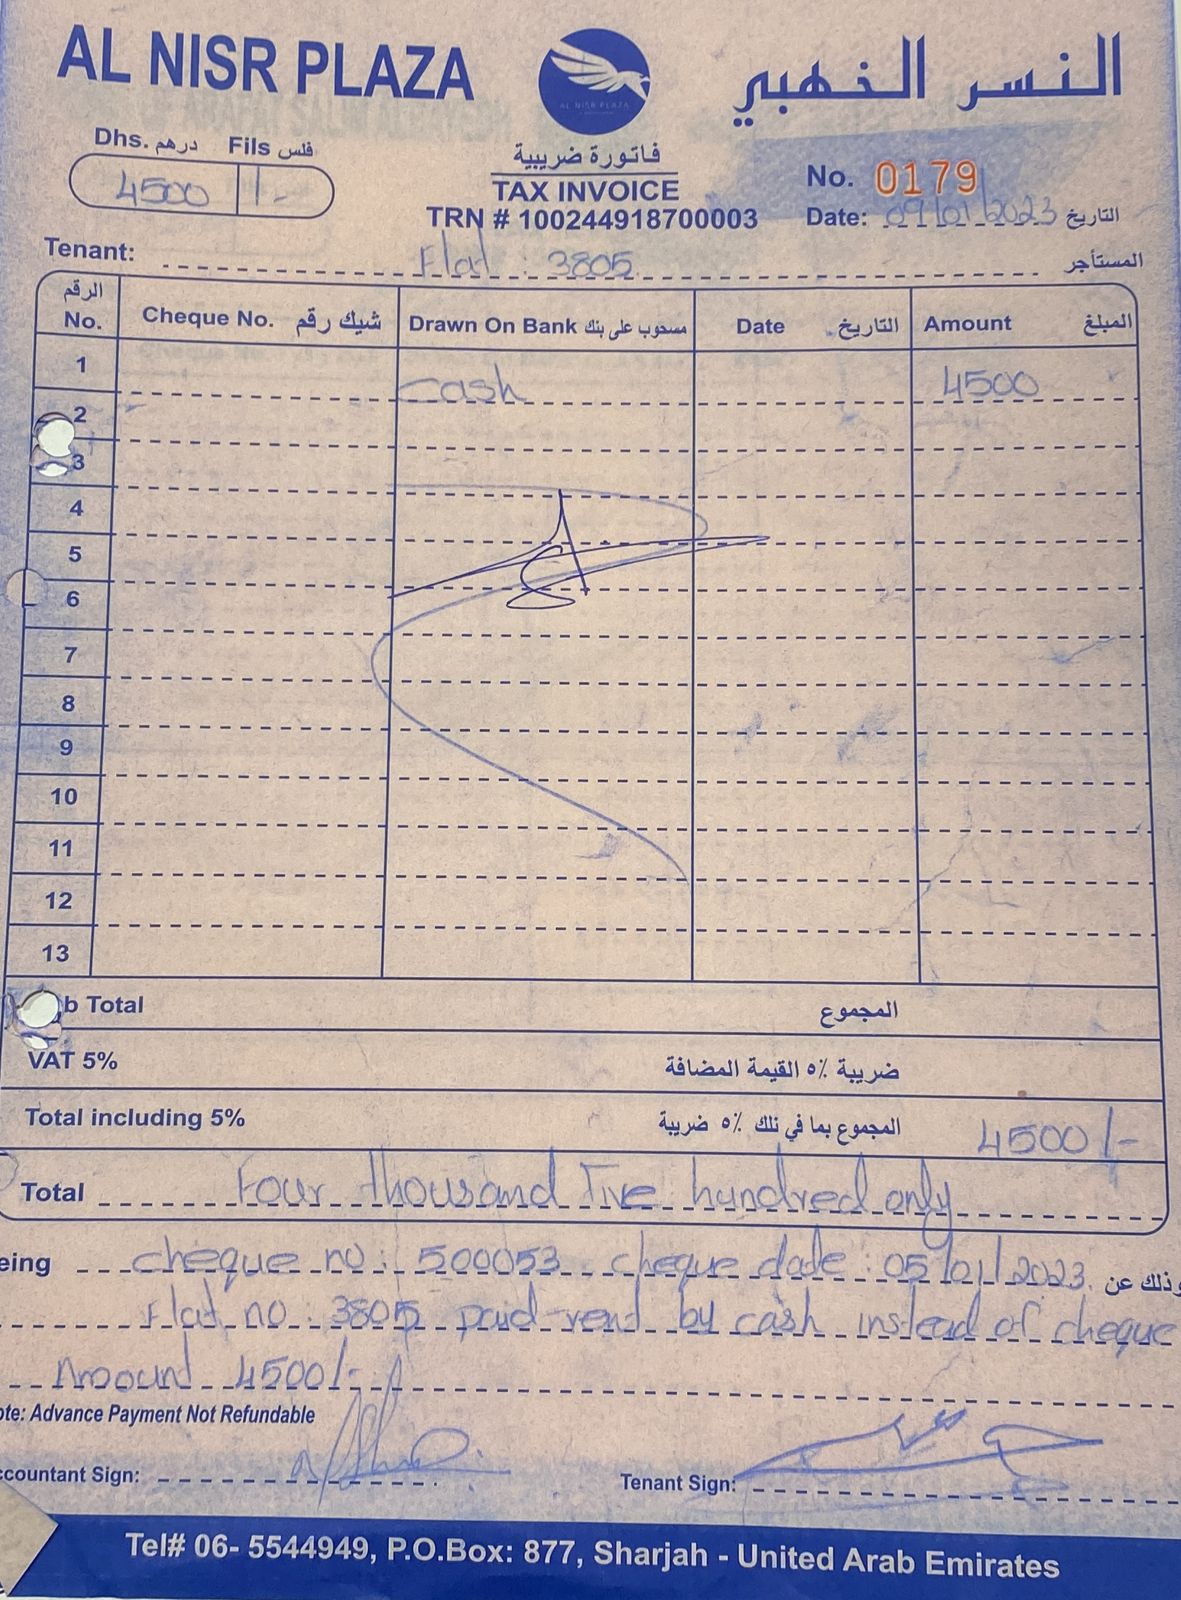 AL NISR PLAZA
AL NISR PLAZA
النسر الذهبي
Dhs. درهم Fils فلس
4500 /-
فاتورة ضريبية
TAX INVOICE
TRN # 100244918700003
No. 0179
Date: 09/01/2023 التاريخ
Tenant: Flat : 3805 المستأجر
الرقم No. Cheque No. شيك رقم Drawn On Bank مسحوب على بنك Date التاريخ Amount المبلغ
1 Cash 4500
2
3
4
5
6
7
8
9
10
11
12
13
b Total المجموع
VAT 5% ضريبة ٥٪ القيمة المضافة
Total including 5% المجموع بما في ذلك ٥٪ ضريبة 4500/-
Total Four thousand Five hundred only
eing cheque no : 500053 cheque date : 05/01/2023 وذلك عن
Flat no : 3805 paid rent by cash instead of cheque
Amount 4500/-
ote: Advance Payment Not Refundable
ccountant Sign: Tenant Sign:
Tel# 06- 5544949, P.O.Box: 877, Sharjah - United Arab Emirates